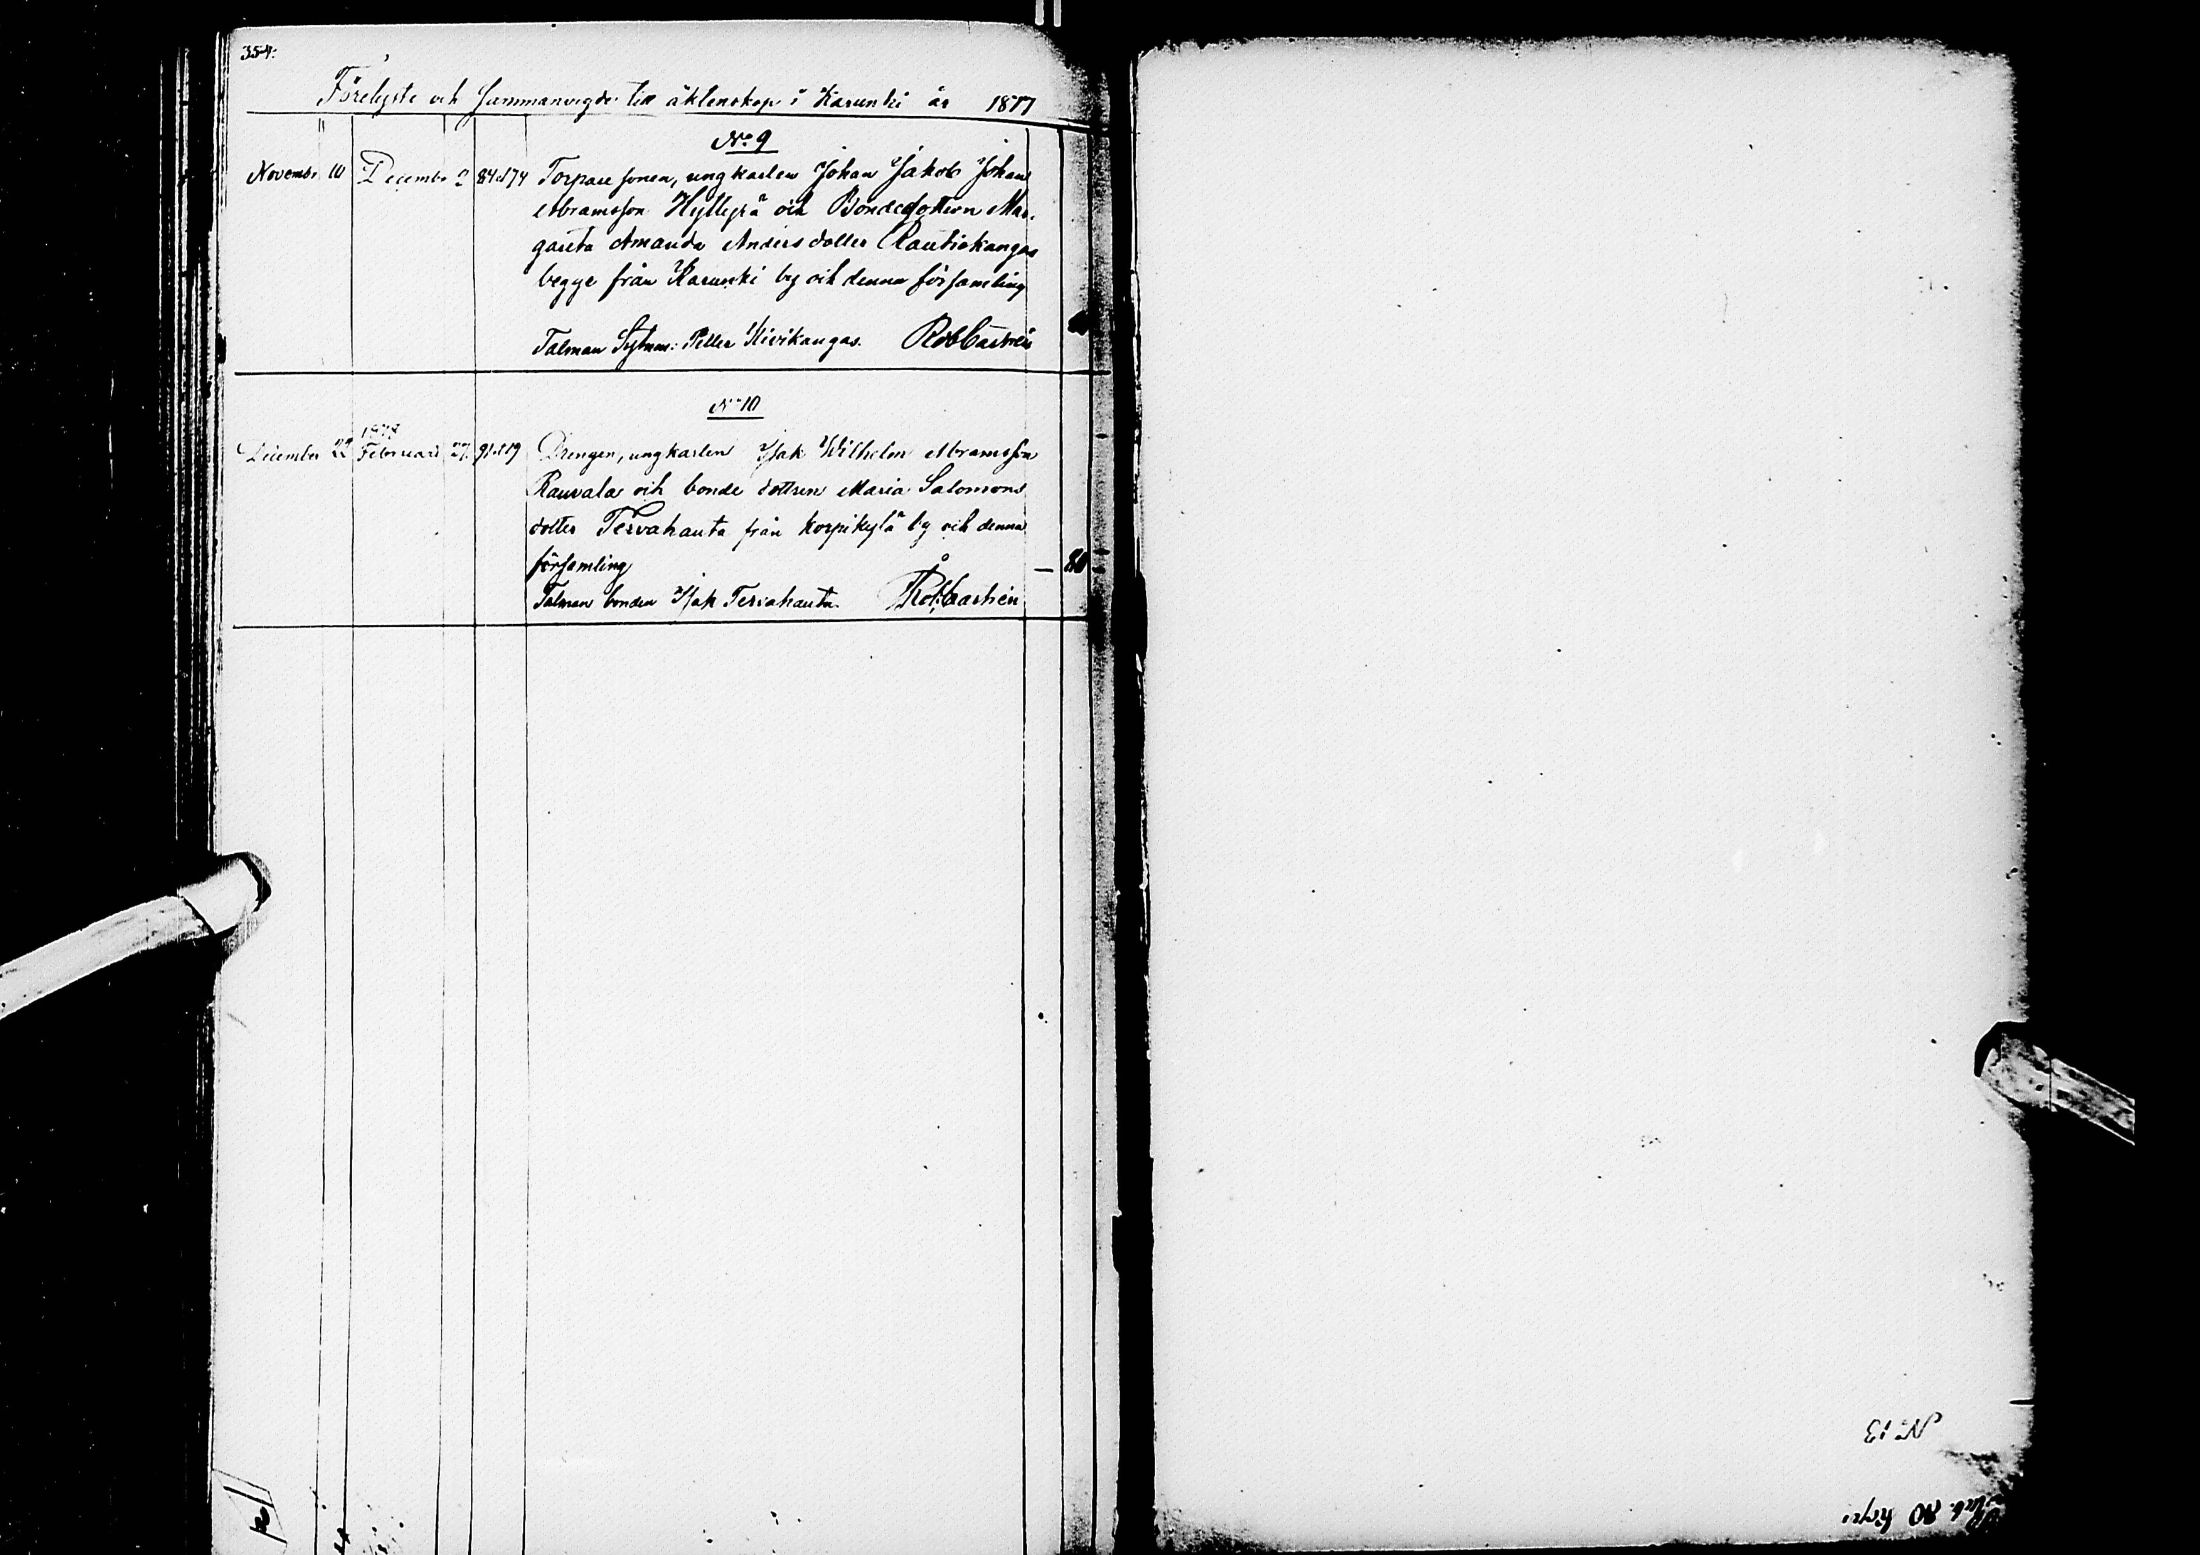 354.
Förelyste och Sammanvigde till äktenskap i Karunki år 1877
No 9
November 10 December 9 84 174 Torpare sonen, ungkarlen Johan Jakob Johan
Abramsson Hyllyrä och Bondedottern Mar-
gareta Amanda Andersdotter Rautiokangas
begge från Karunki by och denna församling
Talman Sexman: Petter Kivikangas. Rob Castrén
No 10
1878
December 22 Februari 27 91 119 Drengen, ungkarlen Isak Wilhelm Abramsson
Rauvala och bonde dottren Maria Salomons
dotter Tervahauta från Korpikylä by och denna
församling — 80
Talman bonden Isak Tervahauta. Rob. Castrén
No 13